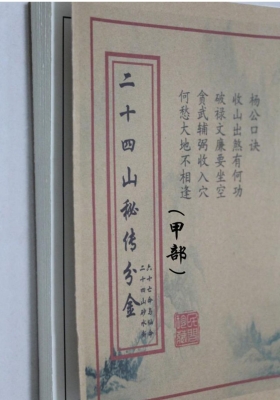 杨公口诀
收山出煞有何功
破禄文廉要坐空
贪武辅弼收入穴
何愁大地不相逢
二十四山秘传分金
（甲部）
二十四山砂水法